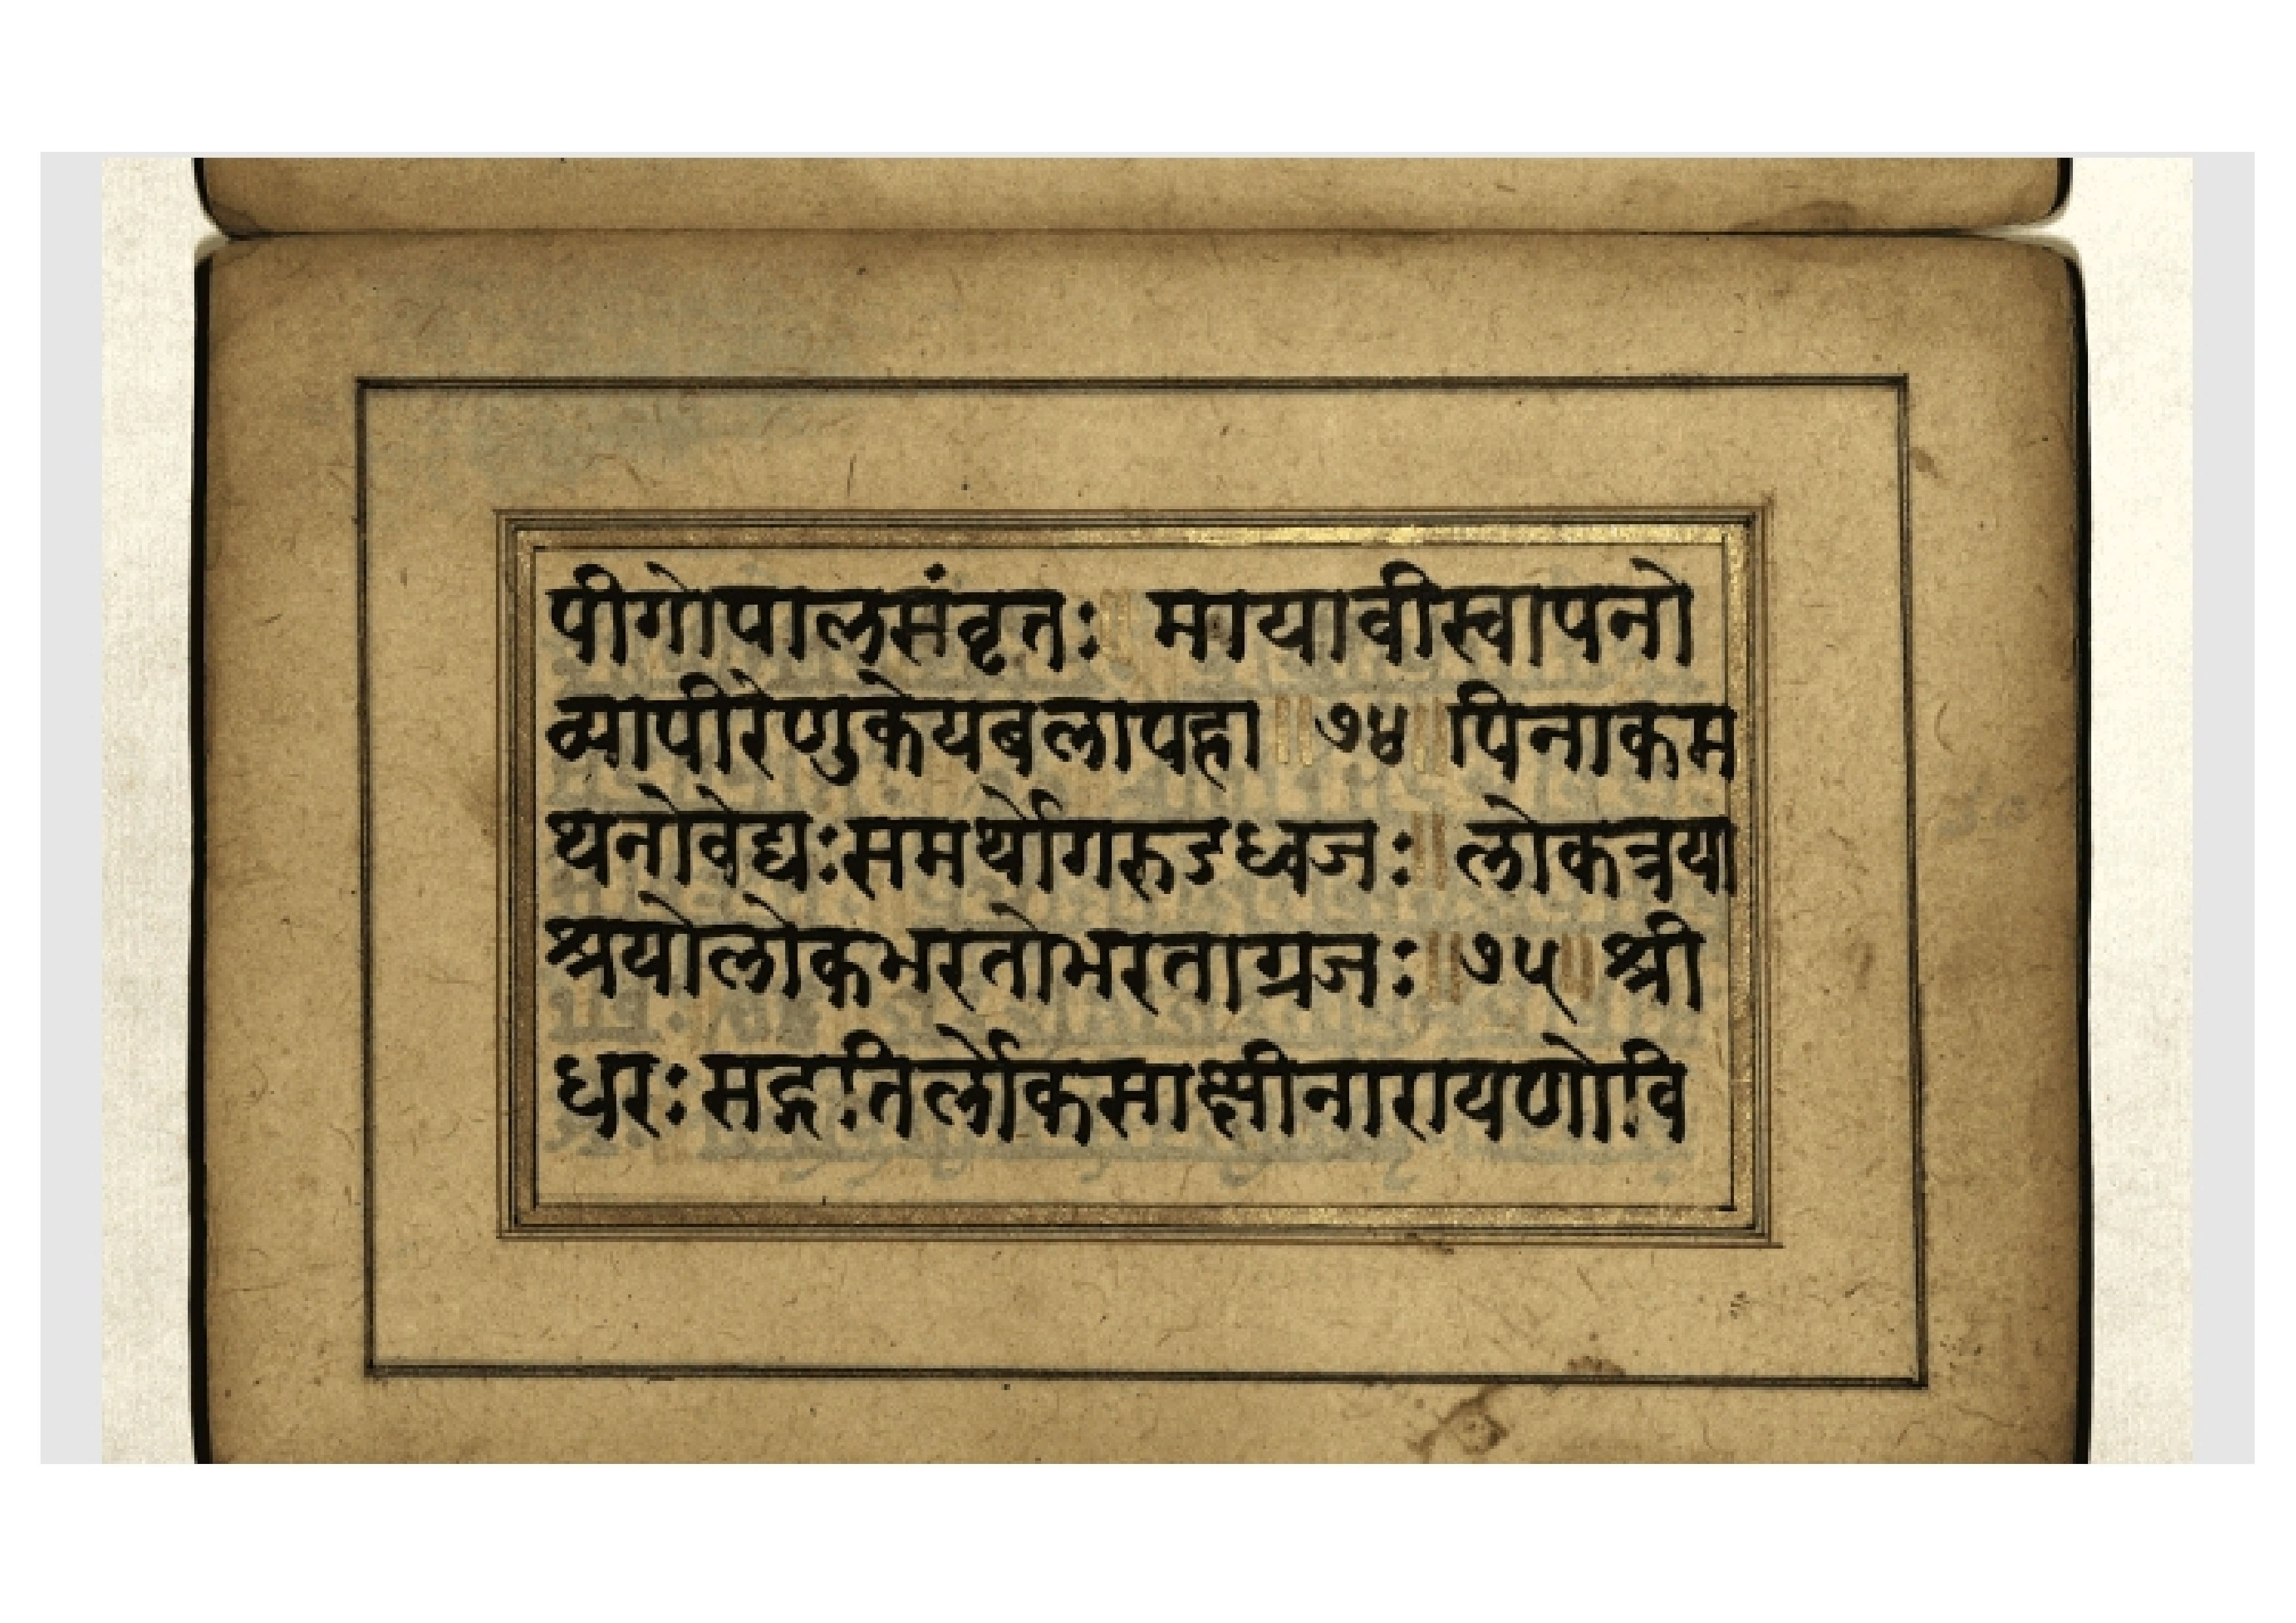 पीगोपालसंवृतः ॥ मायावीस्वापनो
व्यापीरेणुकेयबलापहा ॥ ७४ ॥ पिनाकम
थनोवेद्यःसमर्थोगरुडध्वजः ॥ लोकत्रया
श्रयोलोकभरतोभरताग्रजः ॥ ७५ ॥ श्री
धरःसद्गतिर्लोकसाक्षीनारायणोवि